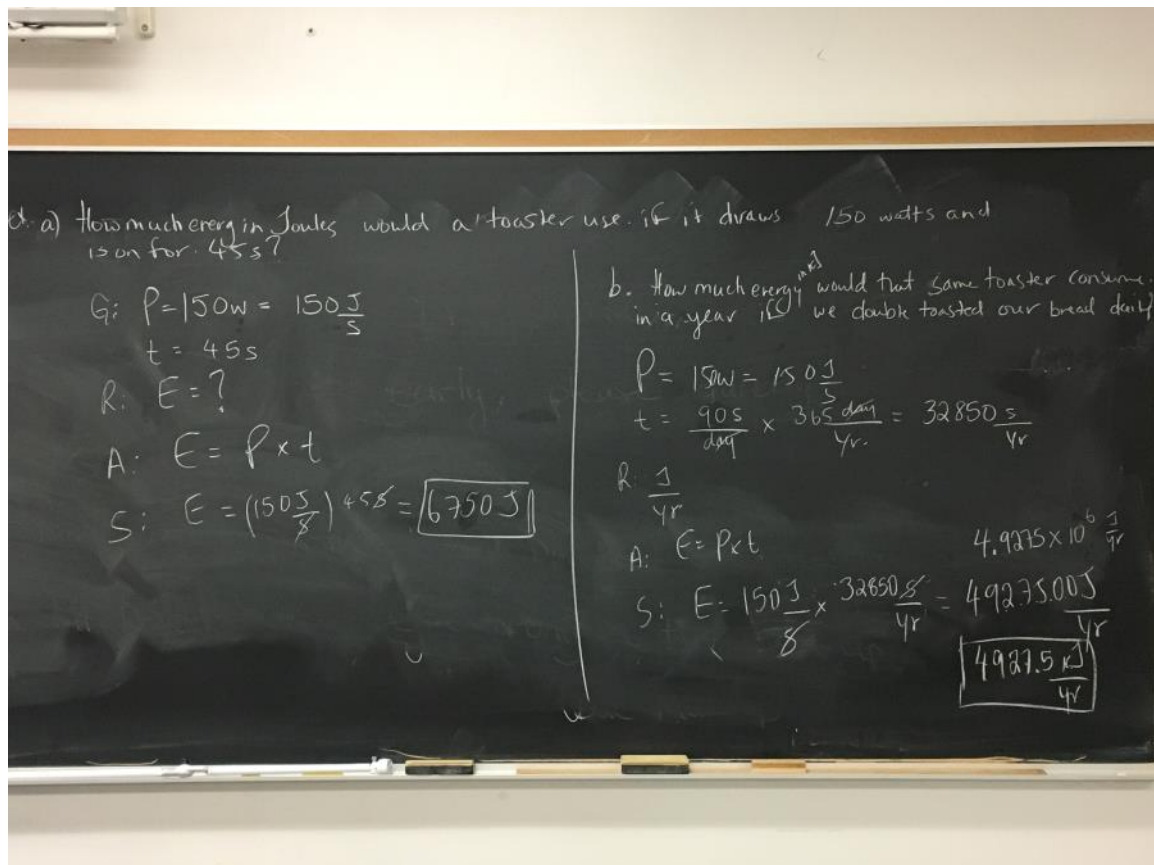 a) How much energ in Joules would a toaster use if it draws 150 watts and
is on for 45s?
G: P=150w = 150 J/s
t = 45s
R: E=?
A: E = P x t
S: E = (150 J/s) 45s = 6750 J
b. How much energy in kJ would that same toaster consume
in a year if we double toasted our bread daily
P = 150w = 150 J/s
t = 90s/day x 365 day/yr. = 32850 s/yr
R: J/yr
A: E = P x t
4.9275 x 10^6 J/yr
S: E = 150 J/s x 32850 s/yr = 4927500 J/yr
4927.5 kJ/yr